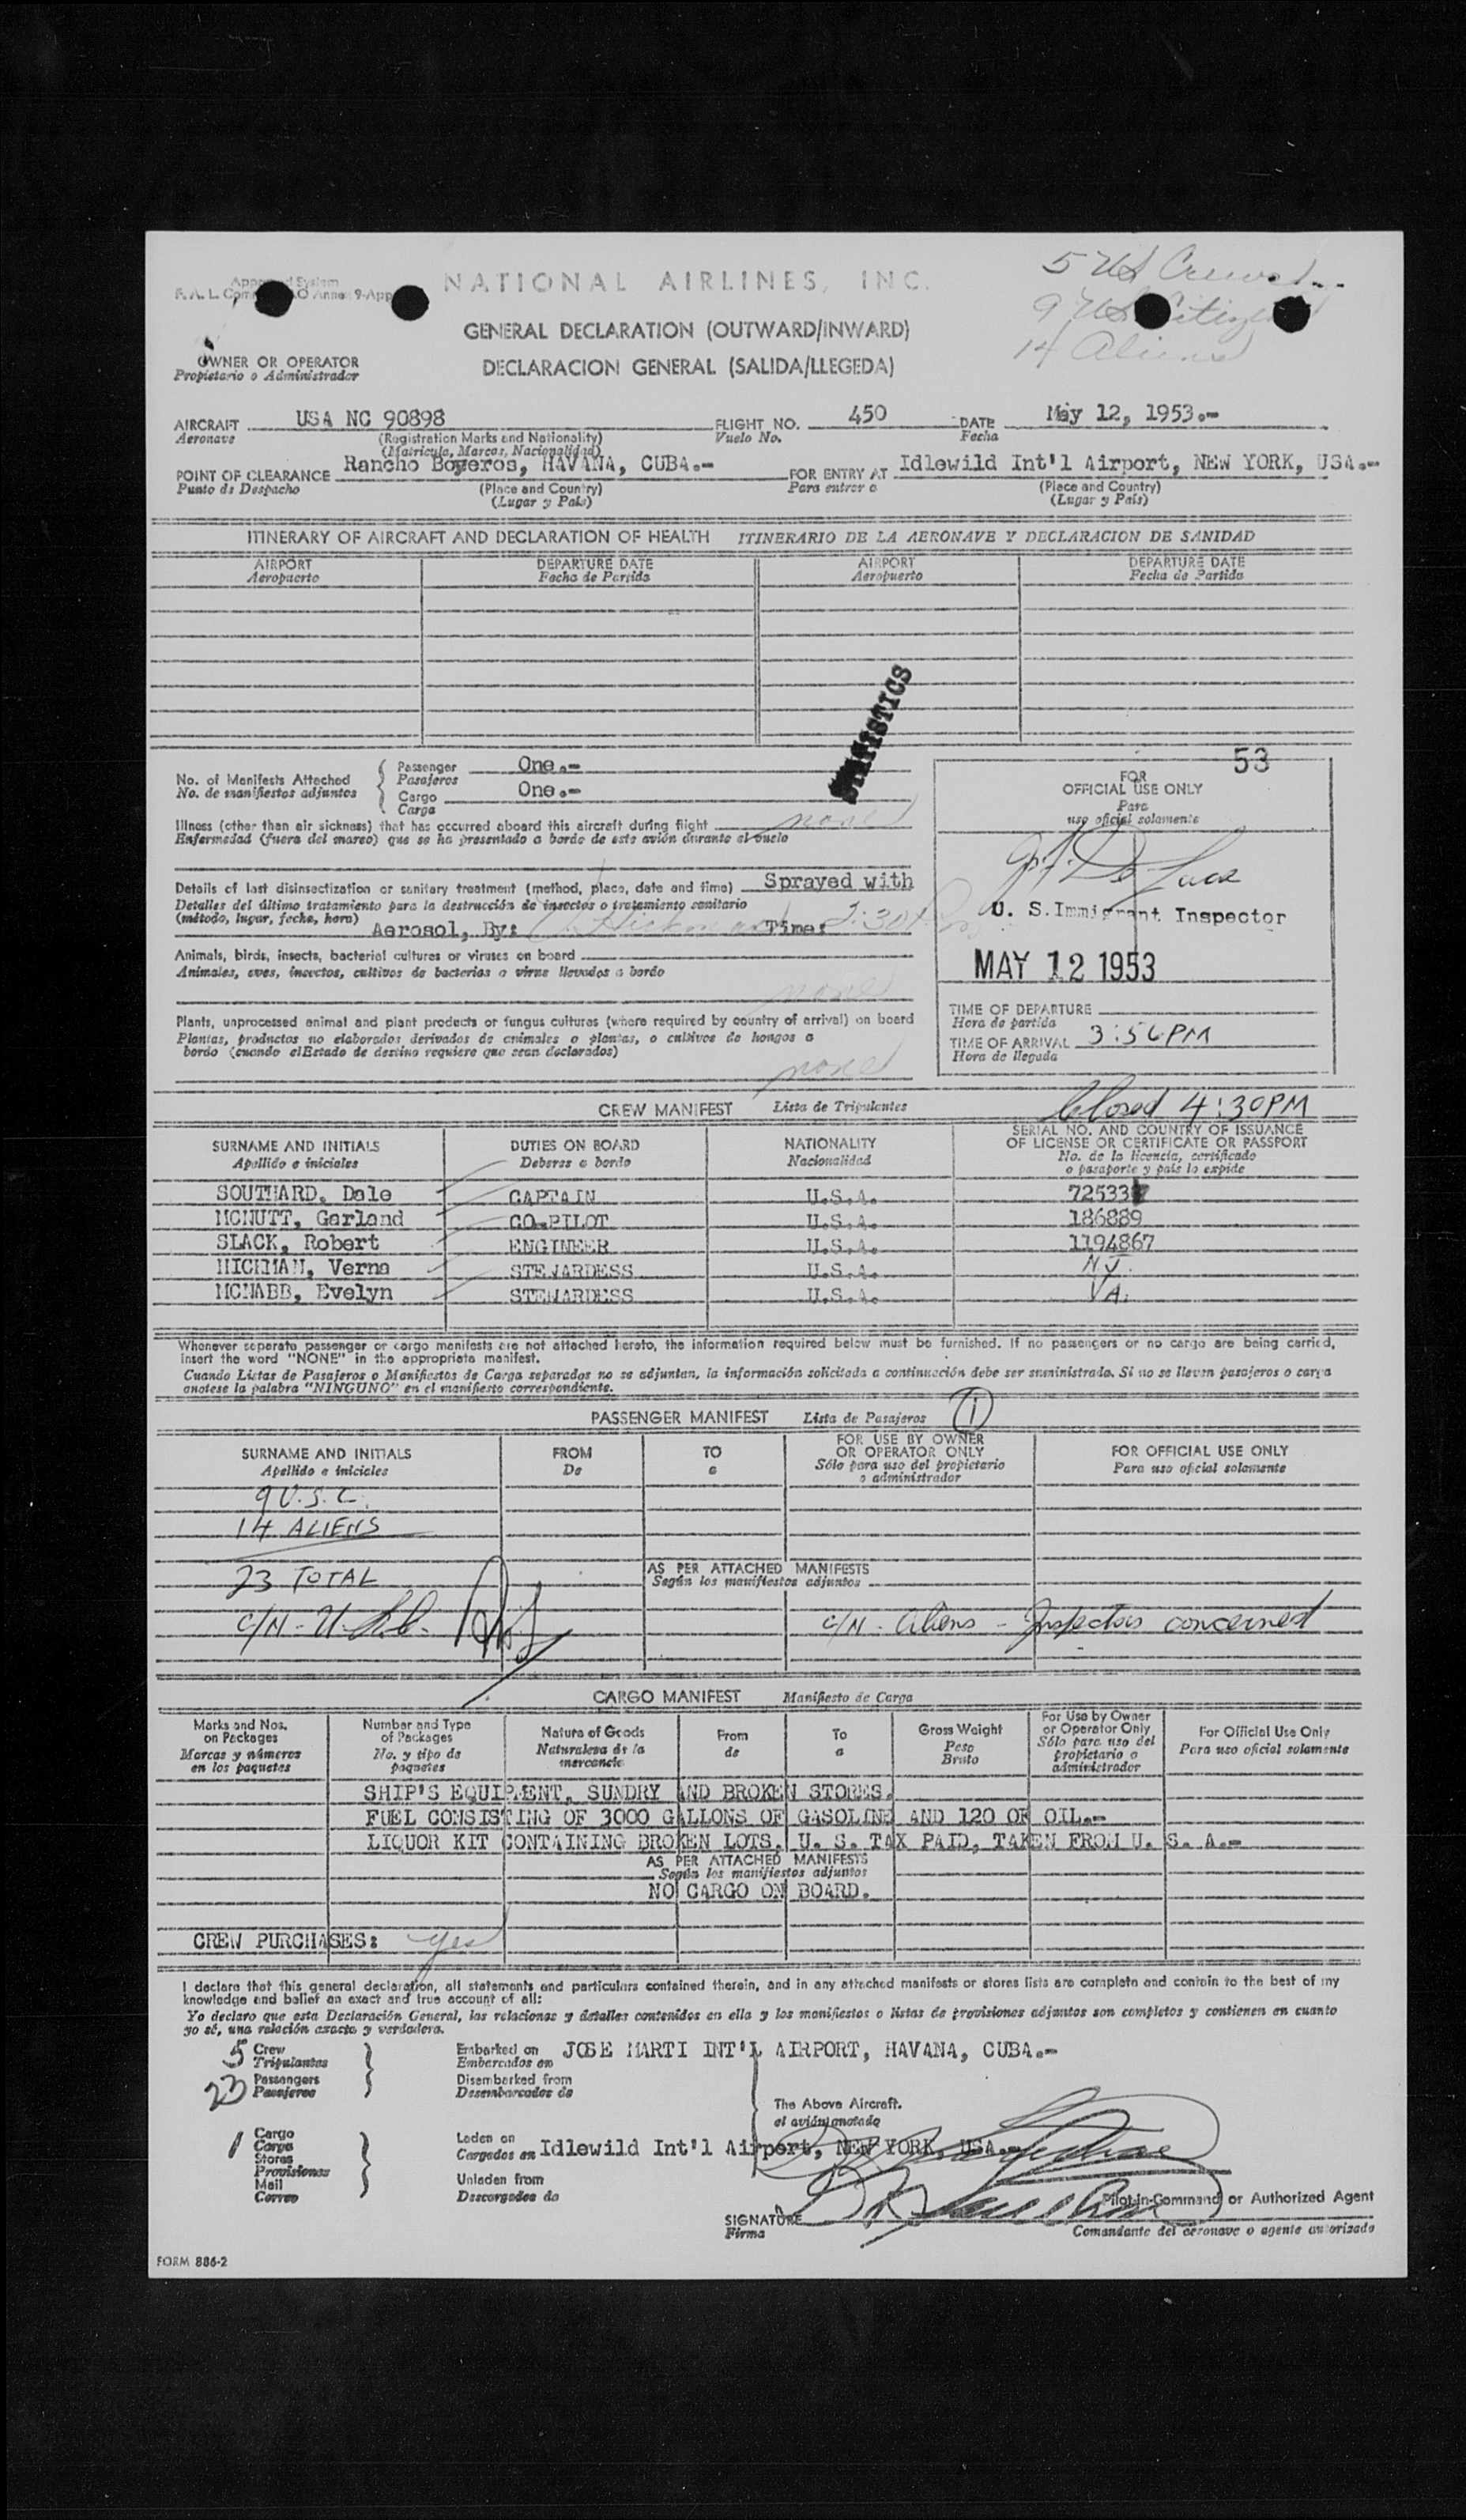 NATIONAL AIRLINES, INC.
5 US Crew
9 US Citizens
14 Aliens
GENERAL DECLARATION (OUTWARD/INWARD)
OWNER OR OPERATOR
Propietario o Administrador
DECLARACION GENERAL (SALIDA/LLEGEDA)
AIRCRAFT USA NC 90898 FLIGHT NO. 450 DATE May 12, 1953.-
Aeronave (Registration Marks and Nationality) Vuelo No. Fecha
(Matricula, Marcas, Nacionalidad)
POINT OF CLEARANCE Rancho Boyeros, HAVANA, CUBA.- FOR ENTRY AT Idlewild Int'l Airport, NEW YORK, USA.-
Punto de Despacho (Place and Country) Para entrar a (Place and Country)
(Lugar y País) (Lugar y País)
ITINERARY OF AIRCRAFT AND DECLARATION OF HEALTH ITINERARIO DE LA AERONAVE Y DECLARACION DE SANIDAD
AIRPORT DEPARTURE DATE AIRPORT DEPARTURE DATE
Aeropuerto Fecha de Partida Aeropuerto Fecha de Partida
STATISTICS
53
No. of Manifests Attached
No. de manifiestos adjuntos
Passenger One.-
Pasajeros
Cargo One.-
Carga
Illness (other than air sickness) that has occurred aboard this aircraft during flight none
Enfermedad (fuera del mareo) que se ha presentado a bordo de este avión durante el vuelo
Details of last disinsectization or sanitary treatment (method, place, date and time) Sprayed with
Detalles del último tratamiento para la destrucción de insectos o tratamiento sanitario
(método, lugar, fecha, hora) Aerosol, By: Hickman Time: 2:30
Animals, birds, insects, bacterial cultures or viruses on board
Animales, aves, insectos, cultivos de bacterias o virus llevados a bordo
none
Plants, unprocessed animal and plant products or fungus cultures (where required by country of arrival) on board
Plantas, productos no elaborados derivados de animales o plantas, o cultivos de hongos a
bordo (cuando el Estado de destino requiere que sean declarados)
none
FOR
OFFICIAL USE ONLY
Para
uso oficial solamente
U. S. Immigrant Inspector
MAY 12 1953
TIME OF DEPARTURE
Hora de partida
TIME OF ARRIVAL 3:56PM
Hora de llegada
CREW MANIFEST Lista de Tripulantes Closed 4:30PM
SURNAME AND INITIALS DUTIES ON BOARD NATIONALITY SERIAL NO. AND COUNTRY OF ISSUANCE
OF LICENSE OR CERTIFICATE OR PASSPORT
Apellido e iniciales Deberes a bordo Nacionalidad No. de la licencia, certificado
o pasaporte y país lo expide
SOUTHARD, Dale CAPTAIN U.S.A. 72533
MCNUTT, Garland CO-PILOT U.S.A. 186889
SLACK, Robert ENGINEER U.S.A. 1194867
HICKMAN, Verna STEWARDESS U.S.A. N.J.
MCNABB, Evelyn STEWARDESS U.S.A. VA.
Whenever separate passenger or cargo manifests are not attached hereto, the information required below must be furnished. If no passengers or no cargo are being carried,
insert the word "NONE" in the appropriate manifest.
Cuando Listas de Pasajeros o Manifiestos de Carga separados no se adjuntan, la información solicitada a continuación debe ser suministrada. Si no se lleven pasajeros o carga
anotese la palabra "NINGUNO" en el manifiesto correspondiente.
PASSENGER MANIFEST Lista de Pasajeros 1
SURNAME AND INITIALS FROM TO FOR USE BY OWNER FOR OFFICIAL USE ONLY
OR OPERATOR ONLY
Apellido e iniciales De a Sólo para uso del propietario Para uso oficial solamente
o administrador
9 U.S.C.
14 ALIENS
23 TOTAL
AS PER ATTACHED MANIFESTS
Según los manifiestos adjuntos
C/N - aliens - Inspectors concerned
CARGO MANIFEST Manifiesto de Carga
Marks and Nos. on Packages
Marcas y números en los paquetes
Number and Type of Packages
No. y tipo de paquetes
Nature of Goods
Naturaleza de la mercancía
From
de
To
a
Gross Weight
Peso Bruto
For Use by Owner or Operator Only
Sólo para uso del propietario o administrador
For Official Use Only
Para uso oficial solamente
SHIP'S EQUIPMENT, SUNDRY AND BROKEN STORES.
FUEL CONSISTING OF 3000 GALLONS OF GASOLINE AND 120 OF OIL.-
LIQUOR KIT CONTAINING BROKEN LOTS, U. S. TAX PAID, TAKEN FROM U. S. A.-
AS PER ATTACHED MANIFESTS
Según los manifiestos adjuntos
NO CARGO ON BOARD.
CREW PURCHASES: yes
I declare that this general declaration, all statements and particulars contained therein, and in any attached manifests or stores lists are complete and contain to the best of my
knowledge and belief an exact and true account of all:
Yo declaro que esta Declaración General, las relaciones y detalles contenidos en ella y los manifiestos o listas de provisiones adjuntos son completos y contienen en cuanto
yo sé, una relación exacta y verdadera.
5 Crew
Tripulantes
23 Passengers
Pasajeros
Embarked on JOSE MARTI INT'L AIRPORT, HAVANA, CUBA.-
Embarcados en
Disembarked from
Desembarcados de
The Above Aircraft.
el avión anotado
1 Cargo
Carga
Stores
Provisiones
Mail
Correo
Laden on
Cargados en Idlewild Int'l Airport, NEW YORK, USA.-
Unladen from
Descargados de
Pilot-in-Command or Authorized Agent
SIGNATURE
Firma Comandante del aeronave o agente autorizado
FORM 886-2